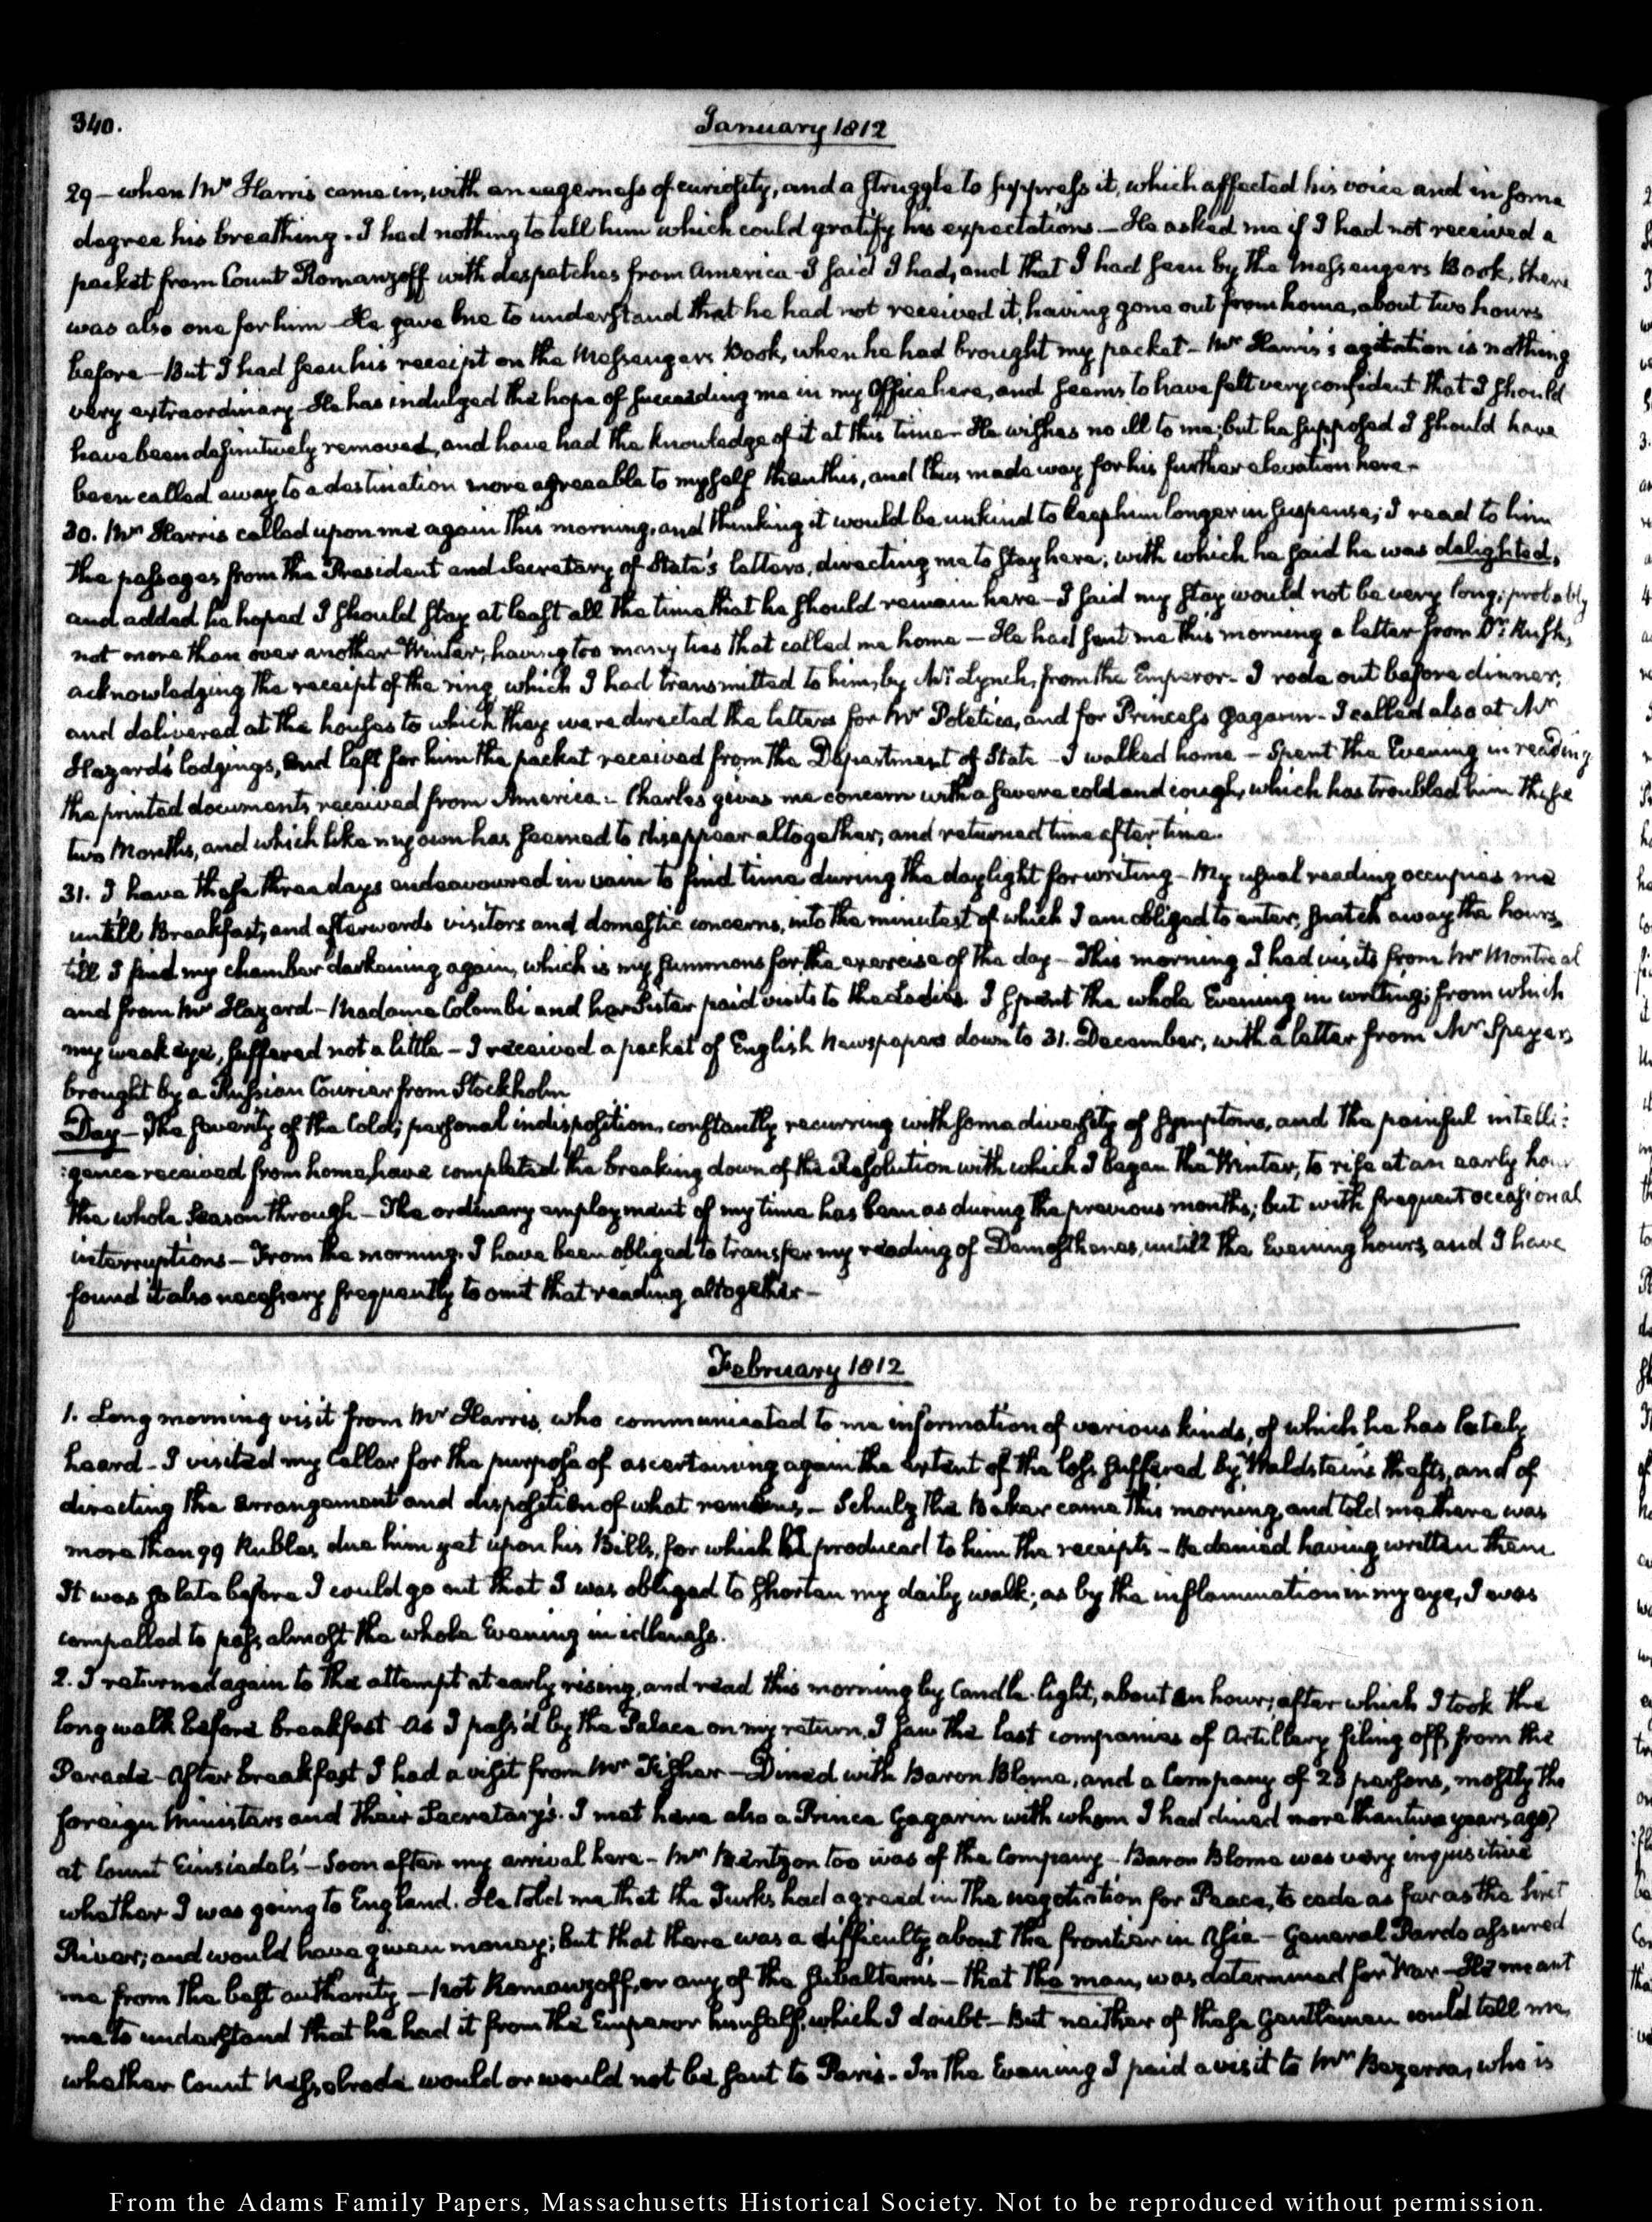 340.
January 1812
29 - when Mr Harris came in, with an eagerness of curiosity, and a struggle to suppress it, which affected his voice and in some
degree his breathing. I had nothing to tell him which could gratify his expectations - He asked me if I had not received a
packet from Count Romanzoff with despatches from America - I said I had, and that I had seen by the Messengers Book, there
was also one for him - He gave me to understand that he had not received it, having gone out from home, about two hours
before - But I had seen his receipt on the Messengers Book, when he had brought my packet - Mr Harris's agitation is nothing
very extraordinary - He has indulged the hope of succeeding me in my Office here, and seems to have felt very confident that I should
have been definitively removed, and have had the knowledge of it at this time - He wishes no ill to me; but he supposed I should have
been called away to a destination more agreeable to myself than this, and thus made way for his further elevation here -
30. Mr Harris called upon me again this morning, and thinking it would be unkind to keep him longer in suspense; I read to him
the passages from the President and Secretary of State's letters, directing me to stay here; with which he said he was delighted,
and added he hoped I should stay at least all the time that he should remain here - I said my stay would not be very long; probably
not more than over another Winter; having too many ties that called me home - He had sent me this morning a letter from Dr. Rush,
acknowledging the receipt of the ring which I had transmitted to him, by Mr. Lynch, from the Emperor - I rode out before dinner;
and delivered at the houses to which they were directed the letters for Mr Poletica, and for Princess Gagarin - I called also at Mr
Hazard's lodgings, and left for him the packet received from the Department of State - I walked home - Spent the Evening in reading
the printed documents received from America. - Charles gives me concern with a severe cold and cough, which has troubled him these
two Months, and which like my own has seemed to disappear altogether, and returned time after time.
31. I have these three days endeavoured in vain to find time during the daylight for writing - My usual reading occupies me
untill Breakfast, and afterwards visitors and domestic concerns, into the minutest of which I am obliged to enter, snatch away the hours,
till I find my chamber darkening again, which is my summons for the exercise of the day - This morning I had visits from Mr Montreal
and from Mr Hazard - Madame Colombi and her Sister paid visits to the Ladies. I spent the whole Evening in writing; from which
my weak eye, suffered not a little - I received a packet of English Newspapers down to 31. December, with a letter from Mr Speyer,
brought by a Russian Courier from Stockholm
Day - The severity of the Cold; personal indisposition, constantly recurring with some diversity of symptoms, and the painful intelli:
:gence received from home, have completed the breaking down of the Resolution with which I began the Winter, to rise at an early hour
the whole Season through - The ordinary employment of my time has been as during the previous months; but with frequent occasional
interruptions - From the morning, I have been obliged to transfer my reading of Demosthenes, untill the Evening hours, and I have
found it also necessary frequently to omit that reading altogether -
February 1812
1. Long morning visit from Mr Harris, who communicated to me information of various kinds, of which he has lately
heard - I visited my Cellar for the purpose of ascertaining again the extent of the loss suffered by Waldstein's thefts, and of
directing the arrangement and disposition of what remains. - Schulz the Baker came this morning, and told me there was
more than 99 Rubles, due him yet upon his Bills, for which I produced to him the receipts - He denied having written them
It was so late before I could go out that I was obliged to shorten my daily walk; as by the inflammation in my eye, I was
compelled to pass almost the whole Evening in idleness.
2. I returned again to the attempt at early rising, and read this morning by Candle-light, about an hour; after which I took the
long walk before breakfast - As I pass'd by the Palace on my return, I saw the last companies of Artillery filing off from the
Parade - After breakfast I had a visit from Mr Fisher - Dined with Baron Blome, and a Company of 23 persons, mostly the
foreign Ministers and their Secretary's. I met here also a Prince Gagarin with whom I had dined more than two years ago,
at Count Einsiedel's - Soon after my arrival here - Mr Krintzon too was of the Company - Baron Blome was very inquisitive
whether I was going to England. He told me that the Turks had agreed in the negotiation for Peace, to cede as far as the Siret
River; and would have given money; but that there was a difficulty about the frontier in Asia - General Pardo assured
me from the best authority - Not Romanzoff, or any of the subalterns - that the man, was determined for War - He meant
me to understand that he had it from the Emperor himself, which I doubt - But neither of these Gentlemen could tell me,
whether Count Nesselrode would or would not be sent to Paris. In the Evening I paid a visit to Mr Bezerra, who is
From the Adams Family Papers, Massachusetts Historical Society. Not to be reproduced without permission.